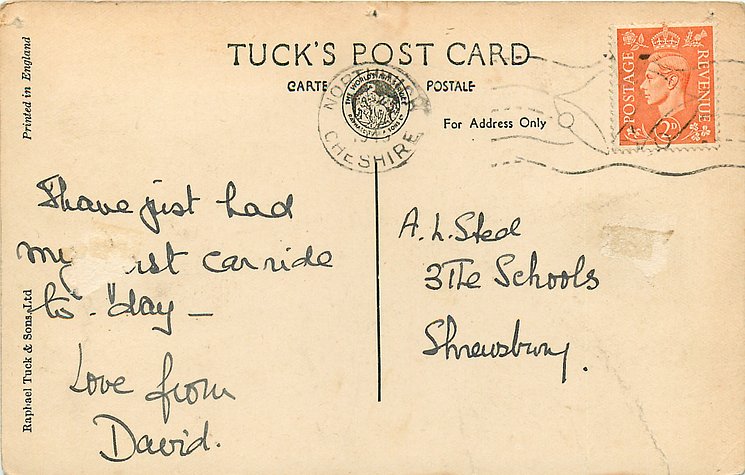 Printed in England
TUCK'S POST CARD
CARTE POSTALE
For Address Only
CHESHIRE
POSTAGE
REVENUE
2D
I have just had
my car ride
to-day —
Love from
David.
A. L. Steel
3 The Schools
Shrewsbury.
Raphael Tuck & Sons, Ltd